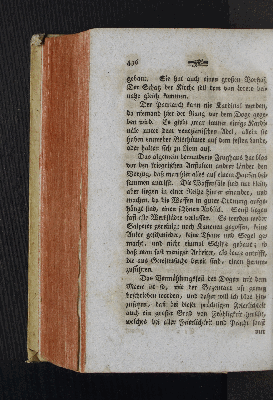 426
gebaut. Sie hat auch einen großen Vorhof.
Der Schatz der Kirche soll dem von Loreto bei-
nahe gleich kommen.
Der Patriarch kann nie Kardinal werden,
da niemand hier der Rang vor dem Doge gege-
ben wird. Es giebt zwar immer einige Kardi-
näle unter dem venezianischen Adel, allein sie
haben entweder Bisthümer auf dem festen Lande,
oder halten sich zu Rom auf.
Das allgemein bewunderte Zeughaus hat blos
vor den kriegerischen Anstalten andrer Länder den
Vorzug, daß man hier alles auf einem Haufen bei-
sammen antrifft. Die Waffensäle sind nur klein,
aber liegen in einer Reihe hinter einander, und
machen, da die Waffen in guter Ordnung aufge-
hängt sind, einen schönen Anblick. Sonst liegen
fast alle Werkstätten verlassen. Es werden weder
Galeeren gezeigt, noch Kanonen gegossen, keine
Anker geschmiedet, keine Thaue und Segel ge-
macht, und nicht einmal Schiffe gebaut; so
daß man fast weniger Arbeiter, als Leute antrifft,
die aus Gewinnsucht bereit sind, einen herum
zuführen.
Das Vermählungsfest des Dogen mit dem
Meere ist so, wie der Bucentaur oft genug
beschrieben worden, und daher will ich blos hin-
zusetzen, daß bei dieser prächtigen Feierlichkeit
auch ein großer Grad von Fröhlichkeit herrscht,
welches bei aller Feierlichkeit und Pracht sonst
nur